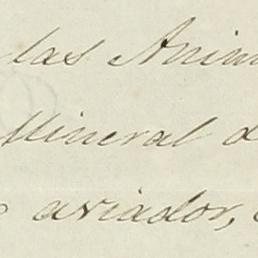 las Anim
Mineral d
aviador,